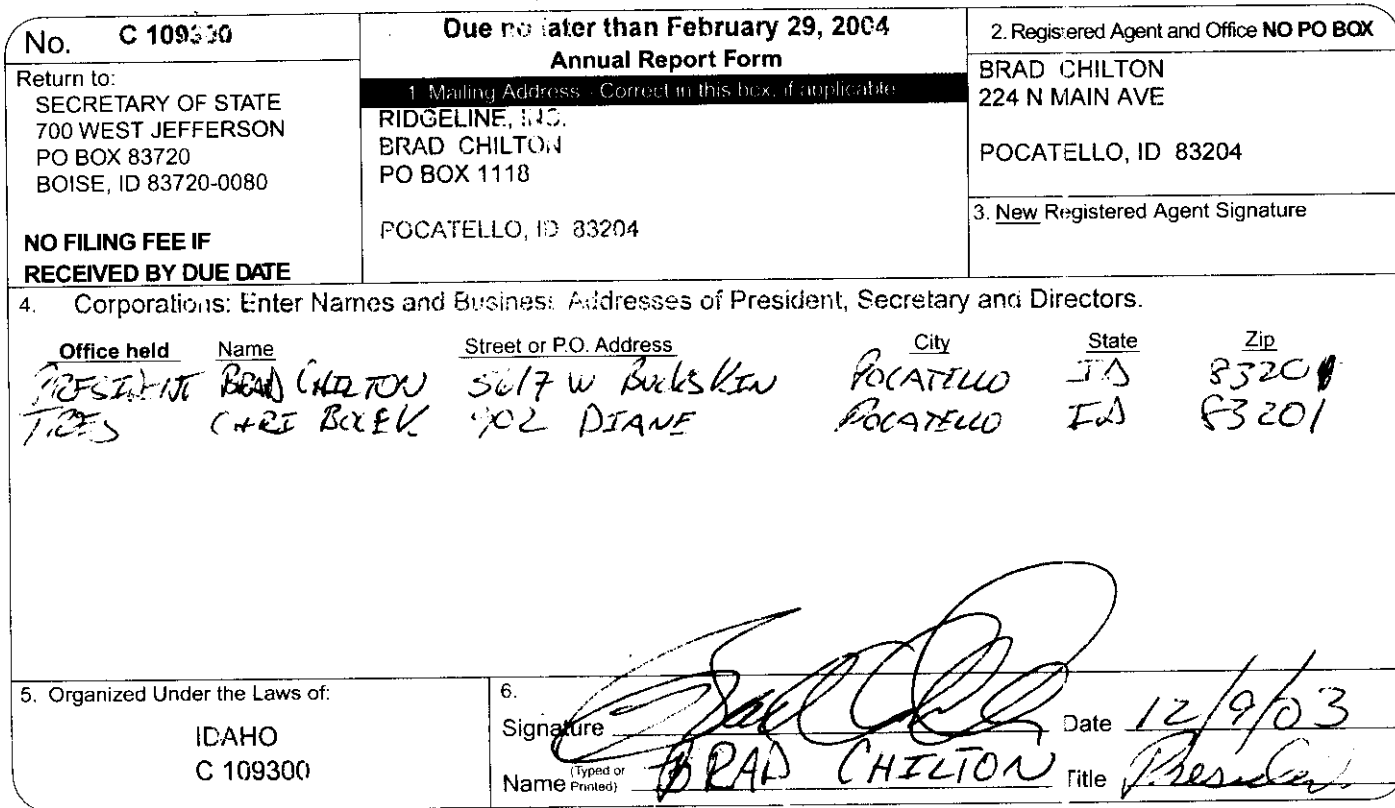 No. C 109300
Return to:
SECRETARY OF STATE
700 WEST JEFFERSON
PO BOX 83720
BOISE, ID 83720-0080
NO FILING FEE IF
RECEIVED BY DUE DATE
Due no later than February 29, 2004
Annual Report Form
1. Mailing Address - Correct in this box, if applicable
RIDGELINE, INC.
BRAD CHILTON
PO BOX 1118
POCATELLO, ID 83204
2. Registered Agent and Office NO PO BOX
BRAD CHILTON
224 N MAIN AVE
POCATELLO, ID 83204
3. New Registered Agent Signature
4. Corporations: Enter Names and Business Addresses of President, Secretary and Directors.
Office held Name Street or P.O. Address City State Zip
PRESIDENT BRAD CHILTON 5617 W BUCKSKIN POCATELLO ID 83201
TRES 902 DIANE POCATELLO ID 83201
5. Organized Under the Laws of:
IDAHO
C 109300
6.
Signature Brad Chilton Date 12/9/03
Name (Typed or Printed) BRAD CHILTON Title President